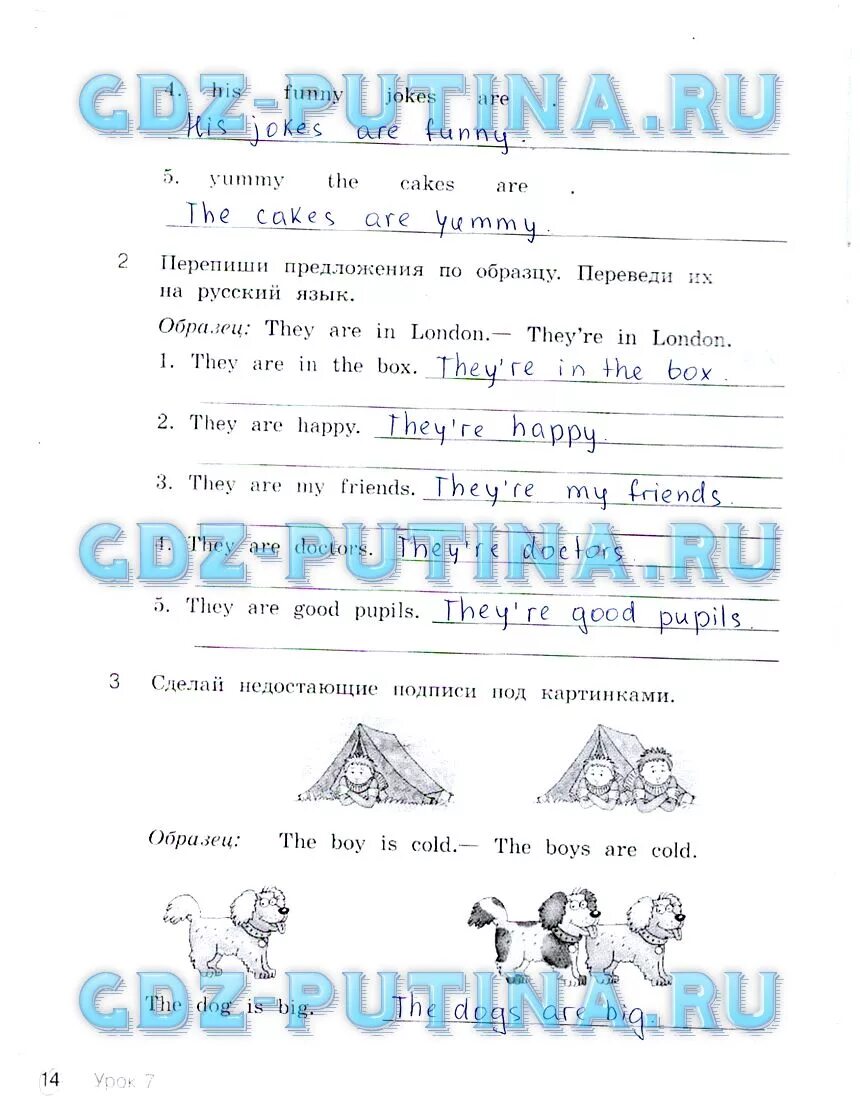 4. his funny jokes are .
His jokes are funny.
5. yummy the cakes are .
The cakes are yummy.
2 Перепиши предложения по образцу. Переведи их
на русский язык.
Образец: They are in London.— They're in London.
1. They are in the box. They're in the box.
2. They are happy. They're happy.
3. They are my friends. They're my friends.
4. They are doctors. They're doctors.
5. They are good pupils. They're good pupils.
3 Сделай недостающие подписи под картинками.
Образец: The boy is cold.— The boys are cold.
The dog is big. The dogs are big.
14 Урок 7
GDZ-PUTINA.RU
GDZ-PUTINA.RU
GDZ-PUTINA.RU